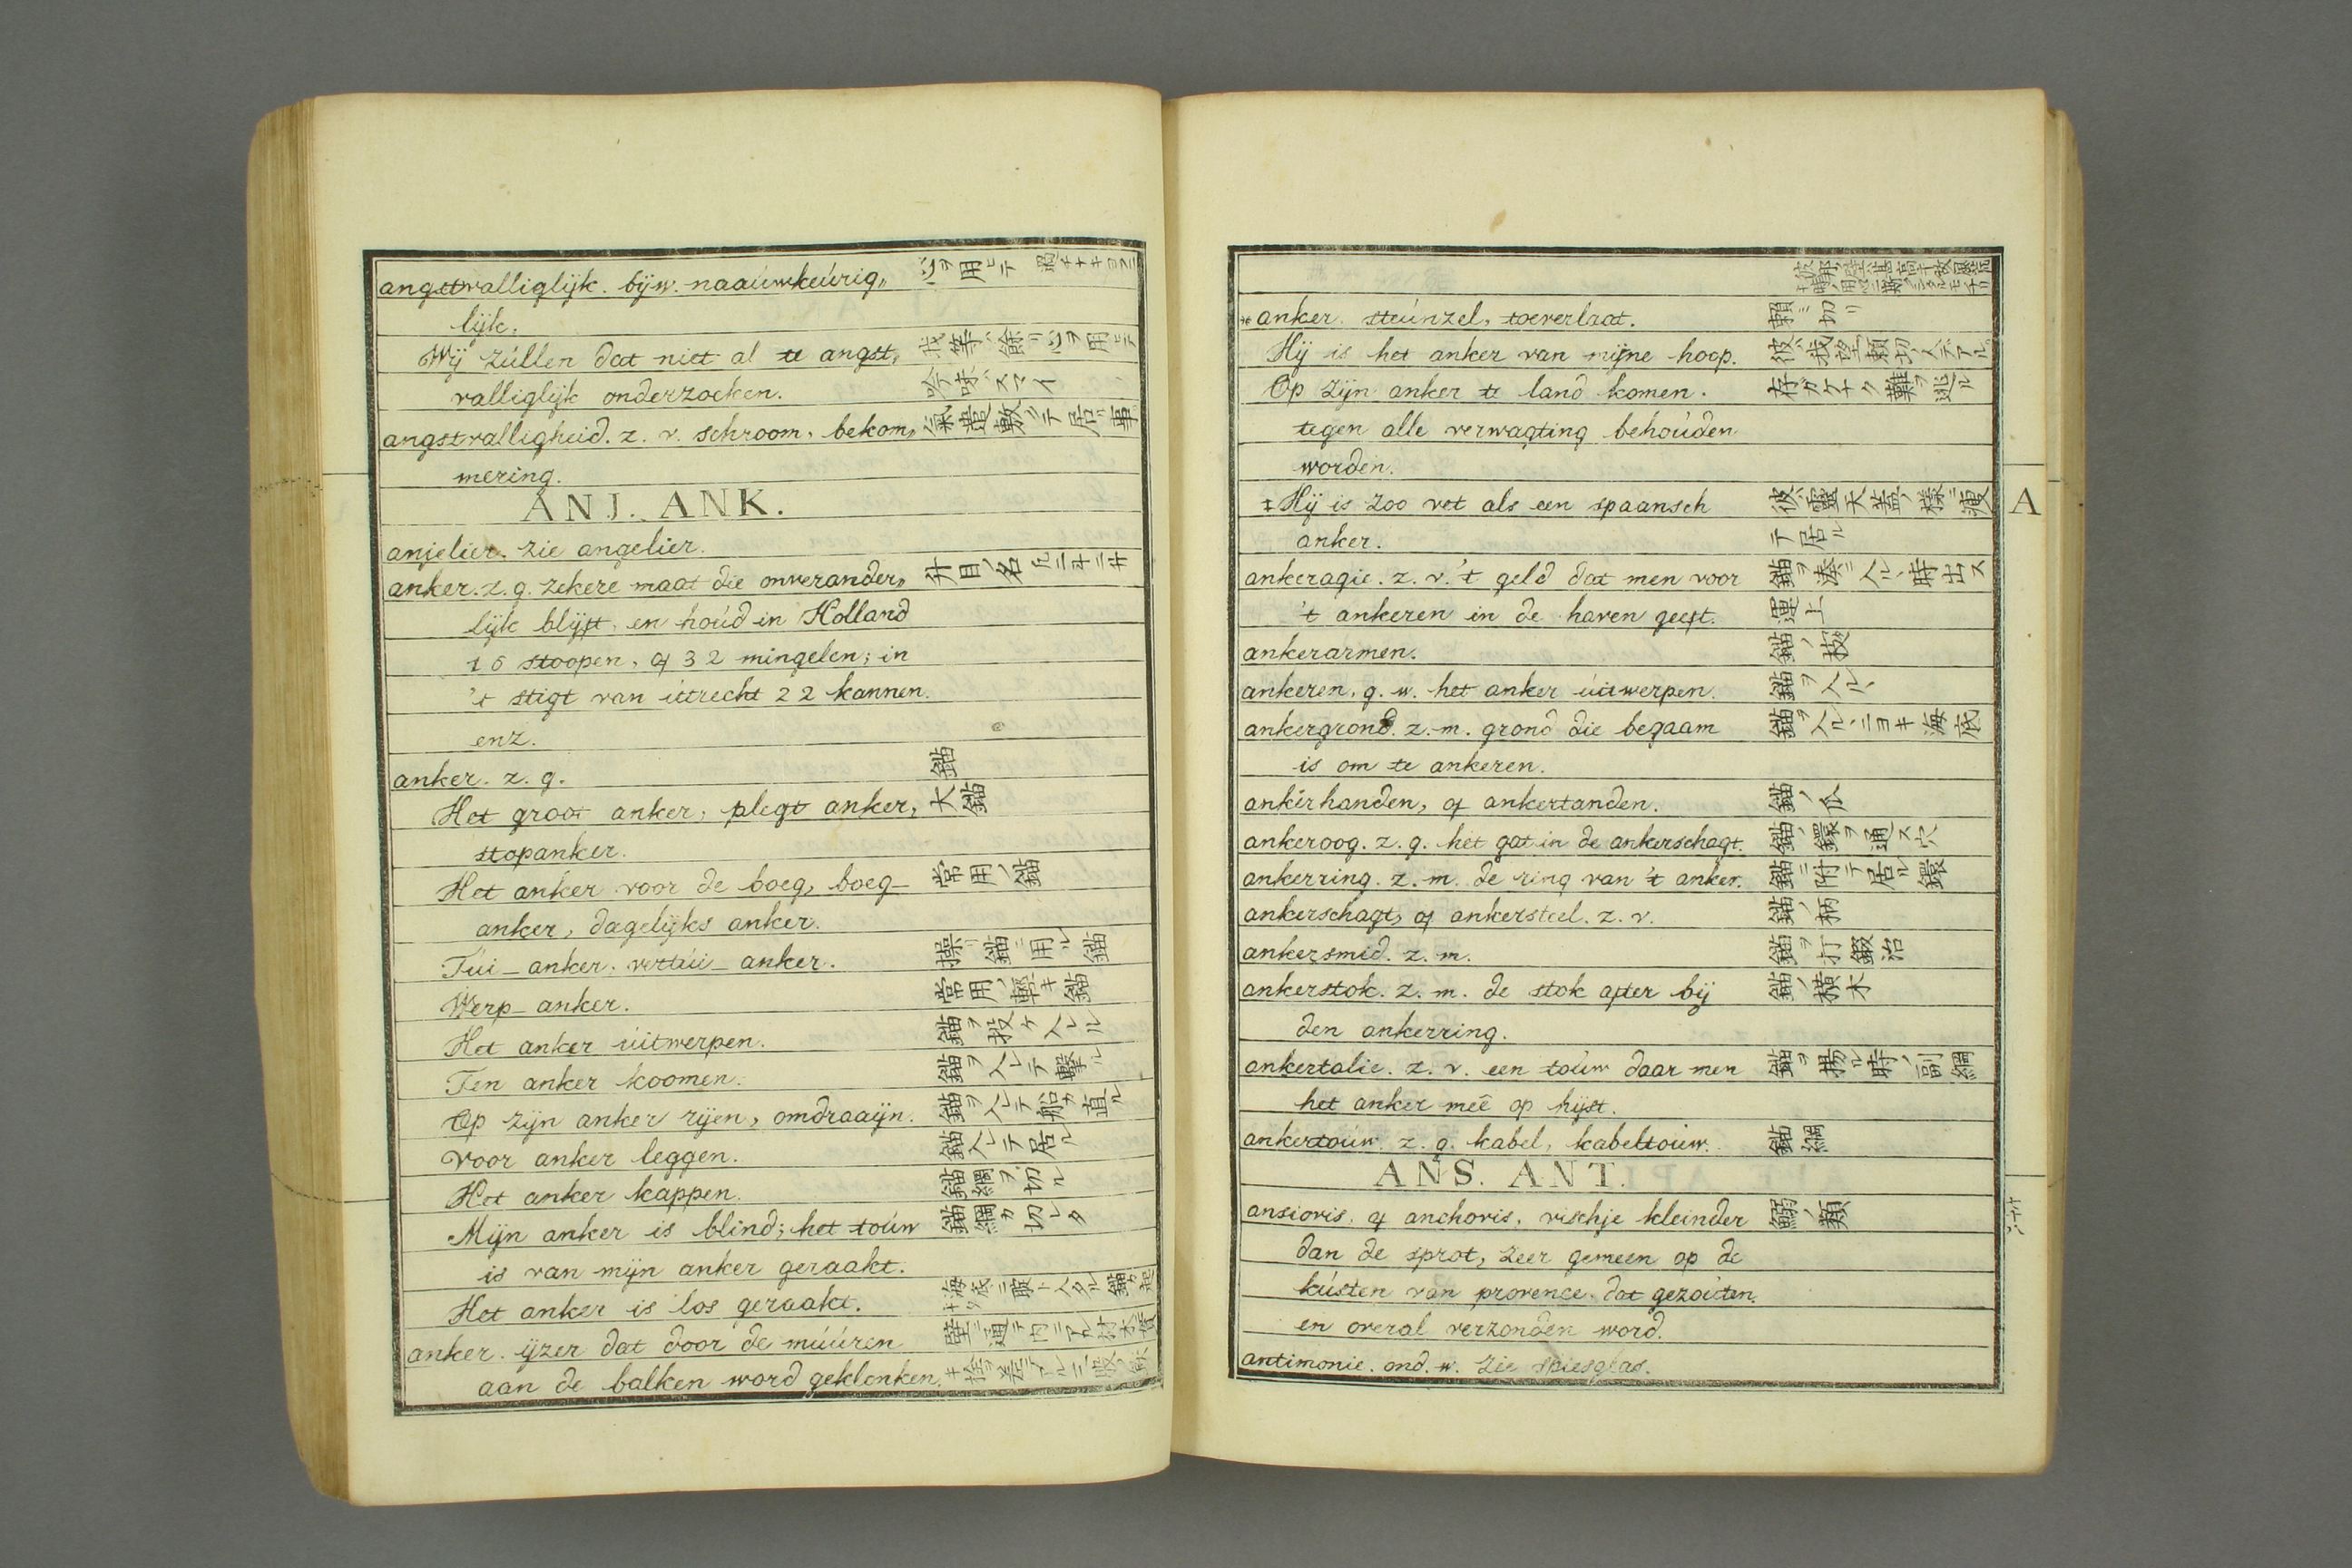 angstvalliglijk. bijw. naaúwkeúrig„ 心ヲ用ヒテ
lijk.
Wij zúllen dat niet al te angst„ 我等ハ餘リ心ヲ用ヒテ
valliglijk onderzoeken. 吟味ハスマイ
angstvalligheid. z. v. schroom, bekom„ 氣遣敷シテ居ル事
mering.
ANJ. ANK.
anjelier. zie angelier.
anker. z. g. zekere maat die onverander„ 升目ノ名
lijk blijft, en hoúd in Holland
16 stoopen, of 32 mingelen; in
't stigt van útrecht 22 kannen.
enz.
anker. z. g. 錨
Het groot anker, plegt anker, 大錨
stopanker.
Het anker voor de boeg, boeg_ 常用ノ錨
anker, dagelijks anker.
Túi_anker. vertúi_anker. 操リ錨ニ用ル錨
Werp_anker. 常用ノ軽キ錨
Het anker úitwerpen. 錨ヲ投ケ入ルル
Ten anker koomen. 錨ヲ入レテ繋ル
Op zijn anker rijen, omdraaijn. 錨ヲ入レテ船カ直ル
voor anker leggen. 錨入レテ居ル
Het anker kappen. 錨綱ヲ切ル
Mijn anker is blind; het toúw 錨綱カ切レタ
is van mijn anker geraakt.
Het anker is los geraakt. 海底ニ
anker. ijzer dat door de múúren 壁ニ通テ内ニアル材木
aan de balken word geklonken.
*anker. steúnzel, toeverlaat. 頼ミ切リ
Hij is het anker van mijne hoop. 彼ハ我望ノ頼ミ切人デアル
Op zijn anker te land komen. 存ガケナク難ヲ逃ル
tegen alle verwagting behoúden
worden.
‡Hij is zoo vet als een spaansch 彼ハ靈天蓋ノ様ニ痩
anker. テ居ル
A
ankeragie. z. v. 't geld dat men voor 錨ヲ湊ニ入ル、時出ス
't ankeren in de haven geeft. 運上
ankerarmen. 錨ノ
ankeren. g. w. het anker úitwerpen. 錨ヲ入ル、
ankergrond. z. m. grond die beqaam 錨ヲ入ル、ニヨキ海底
is om te ankeren.
ankerhanden, of ankertanden. 錨ノ爪
ankeroog. z. g. het gat in de ankerschagt. 錨ノ鐶ヲ通ス穴
ankerring. z. m. de ring van 't anker. 錨ニ附テ居ル鐶
ankerschagt, of ankersteel. z. v. 錨ノ柄
ankersmid. z. m. 錨ヲ打鍛冶
ankerstok. z. m. de stok after bij 錨ノ横木
den ankerring.
ankertalie. z. v. een toúw daar men 錨ヲ揚ル時ノ副綱
het anker meê op hijst.
ankertoúw. z. g. kabel, kabeltoúw. 錨綱
ANS. ANT.
ansiovis. of anchovis. vischje kleinder 鰯ノ類
dan de sprot, zeer gemeen op de
kústen van provence. dat gezoúten.
en overal verzonden word.
antimonie. ond. w. zie spiesglas.